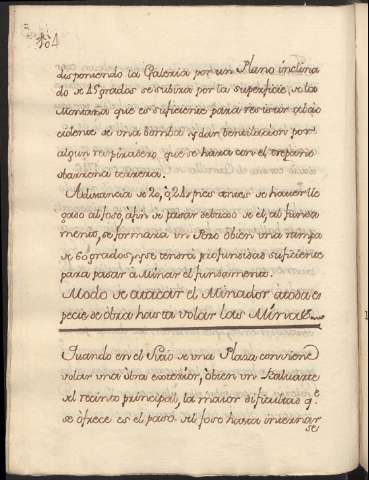 104
disponiendo la Galeria por un Plano inclina
do de 45 grados se subira por la superficie, de la
Montaña que es suficiente para resistir al ac
cidente de una bomba, y dar bentilacion por
algun respiradero, que se hara con el trepano
o barrena terrera.
A distancia de 20, ò 24 pies antes de haver lle
gado al foso, afin de pasar debaxo de el, al funda
mento, se formarà un Pozo òbien una rampa
de 60 grados, y se tendrà profundidad suficiente
para pasar à Minar el fundamento.
Modo de atacar el Minador à toda es
pecie de òbra hasta volar las Minas
Quando en el Sitio de una Plaza conviene
volar una òbra exterior, òbien un Baluarte
del recinto principal, la maior dificultad q.e
se òfrece es el paso del foso hasta internar
se